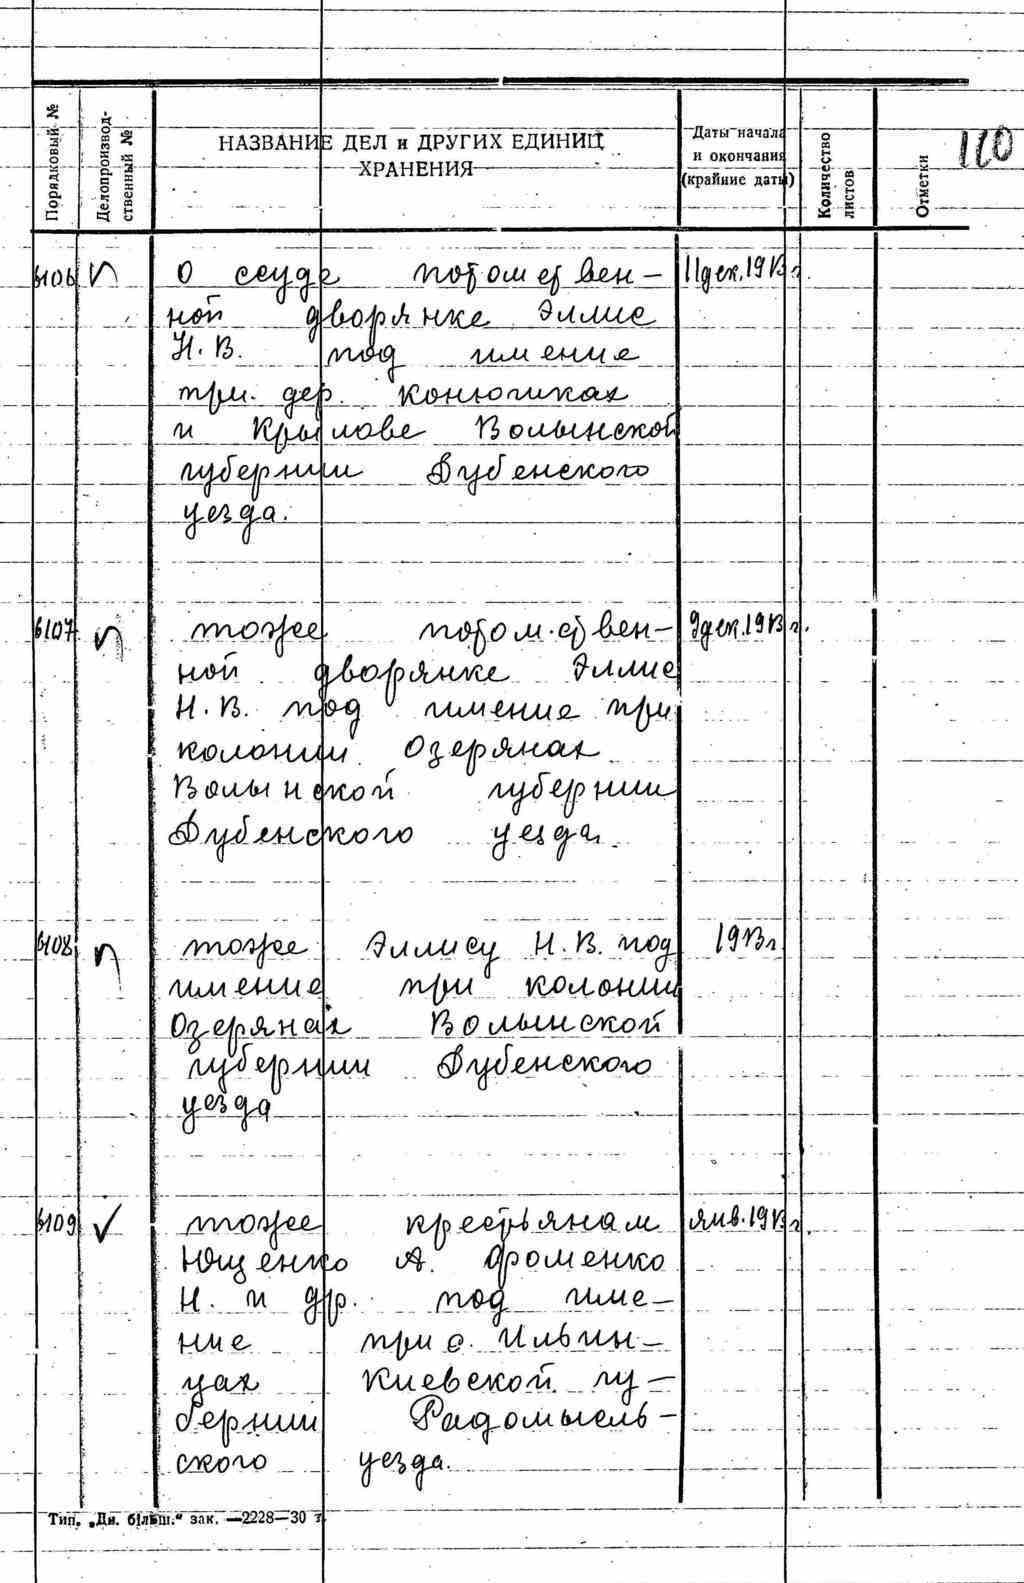 110
Порядковый №
Делопроизвод-
ственный №
НАЗВАНИЕ ДЕЛ и ДРУГИХ ЕДИНИЦ
ХРАНЕНИЯ
Даты начала
и окончания
(крайние даты)
Количество
листов
Отметки
6106 О ссуде потомствен- 11 дек. 1913 г.
ной дворянке Эллис
Н. В. под имение
при дер. Конюшках
и Крылове Волынской
губернии Дубенского
уезда.
6107 тоже потомствен- 9 дек. 1913 г.
ной дворянке Эллис
Н. В. под имение при
колонии Озерянах
Волынской губернии
Дубенского уезда.
6108 тоже Эллису Н. В. под 1913 г.
имение при колонии
Озерянах Волынской
губернии Дубенского
уезда
6109 ✓ тоже крестьянам янв. 1913 г.
Ющенко А. Фоменко
Н. и др. под име-
ние при с. Ильин-
цах Киевской гу-
бернии Радомысль-
ского уезда.
Тип. „Дн. більш.“ зак. —2228—30 т.